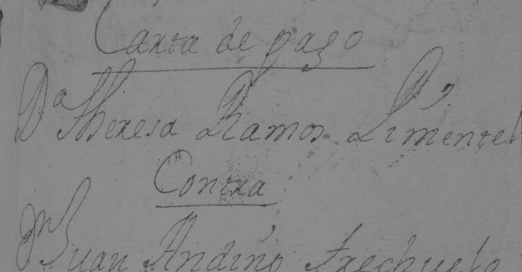 Carta de pago
Dª Theresa Ramos Pimentel
Contra
Juan Andino